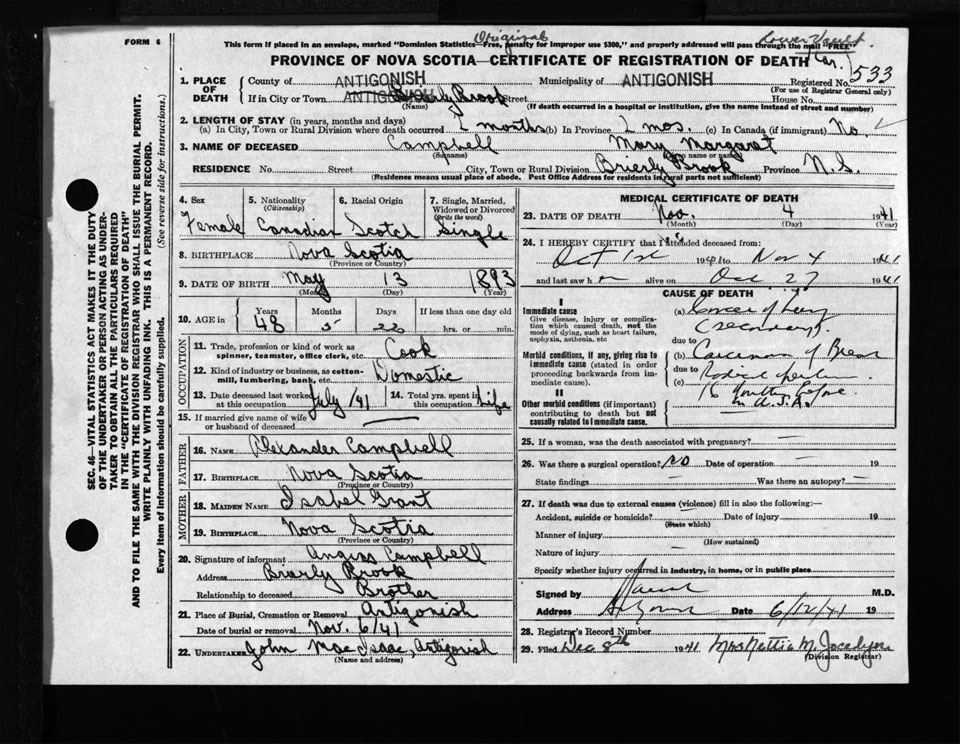 Original
Lower Vault
FORM 6
This form if placed in an envelope, marked "Dominion Statistics—Free, penalty for improper use $300," and properly addressed will pass through the mail "FREE"
PROVINCE OF NOVA SCOTIA—CERTIFICATE OF REGISTRATION OF DEATH
Registered No. 533
(For use of Registrar General only)
1. PLACE OF DEATH County of ANTIGONISH Municipality of ANTIGONISH
If in City or Town ANTIGONISH Brierly Brook Street House No.
(Name) (If death occurred in a hospital or institution, give the name instead of street and number)
2. LENGTH OF STAY (in years, months and days)
(a) In City, Town or Rural Division where death occurred 2 months (b) In Province 2 mos. (c) In Canada (if immigrant) No.
3. NAME OF DECEASED Campbell Mary Margaret
(Surname) (Given name or names)
RESIDENCE No. Street City, Town or Rural Division Brierly Brook Province N.S.
(Residence means usual place of abode. Post Office Address for residents in rural parts not sufficient)
4. Sex 5. Nationality (Citizenship) 6. Racial Origin 7. Single, Married, Widowed or Divorced (Write the word)
Female Canadian Scotch Single
8. BIRTHPLACE Nova Scotia
(Province or Country)
9. DATE OF BIRTH May 13 1893
(Month) (Day) (Year)
10. AGE in Years Months Days If less than one day old
48 5 22 hrs. or min.
OCCUPATION
11. Trade, profession or kind of work as spinner, teamster, office clerk, etc. Cook
12. Kind of industry or business, as cotton-mill, lumbering, bank, etc. Domestic
13. Date deceased last worked at this occupation July /41 14. Total yrs. spent in this occupation Life
15. If married give name of wife or husband of deceased
FATHER
16. NAME Alexander Campbell
17. BIRTHPLACE Nova Scotia
(Province or Country)
MOTHER
18. MAIDEN NAME Isabel Grant
19. BIRTHPLACE Nova Scotia
(Province or Country)
20. Signature of informant Angus Campbell
Address Brierly Brook
Relationship to deceased Brother
21. Place of Burial, Cremation or Removal Antigonish
Date of burial or removal Nov. 6/41
22. UNDERTAKER John MacIsaac, Antigonish
(Name and address)
MEDICAL CERTIFICATE OF DEATH
23. DATE OF DEATH Nov. 4 1941
(Month) (Day) (Year)
24. I HEREBY CERTIFY that I attended deceased from:
Oct 1st 1941 to Nov 4 1941
and last saw h alive on Oct 27 1941
CAUSE OF DEATH
I
Immediate cause
Give disease, injury or complication which caused death, not the mode of dying, such as heart failure, asphyxia, asthenia, etc
(a) Cancer of Lung (secondary)
due to
Morbid conditions, if any, giving rise to immediate cause (stated in order proceeding backwards from immediate cause).
(b) Carcinoma of Breast
due to
(c)
II
Other morbid conditions (if important) contributing to death but not causally related to immediate cause.
16 months before
in U.S.A.
25. If a woman, was the death associated with pregnancy? —
26. Was there a surgical operation? NO Date of operation — 19
State findings Was there an autopsy? —
27. If death was due to external causes (violence) fill in also the following:—
Accident, suicide or homicide? Date of injury 19
(State which)
Manner of injury
(How sustained)
Nature of injury —
Specify whether injury occurred in industry, in home, or in public place
Signed by M.D.
Address Date 6/12/41 19
28. Registrar's Record Number
29. Filed Dec 8th 1941 Mrs Nettie M. Jocelyn
(Division Registrar)
SEC. 46—VITAL STATISTICS ACT MAKES IT THE DUTY
OF THE UNDERTAKER OR PERSON ACTING AS UNDER-
TAKER TO OBTAIN ALL THE PARTICULARS REQUIRED
IN THE "CERTIFICATE OF REGISTRATION OF DEATH"
AND TO FILE THE SAME WITH THE DIVISION REGISTRAR WHO SHALL ISSUE THE BURIAL PERMIT.
WRITE PLAINLY WITH UNFADING INK. THIS IS A PERMANENT RECORD.
Every item of information should be carefully supplied. (See reverse side for instructions.)